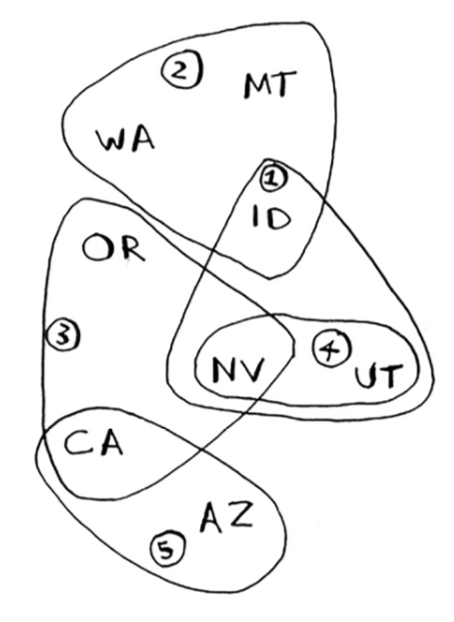 ② MT
WA
①
ID
OR
③
④
NV UT
CA
AZ
⑤